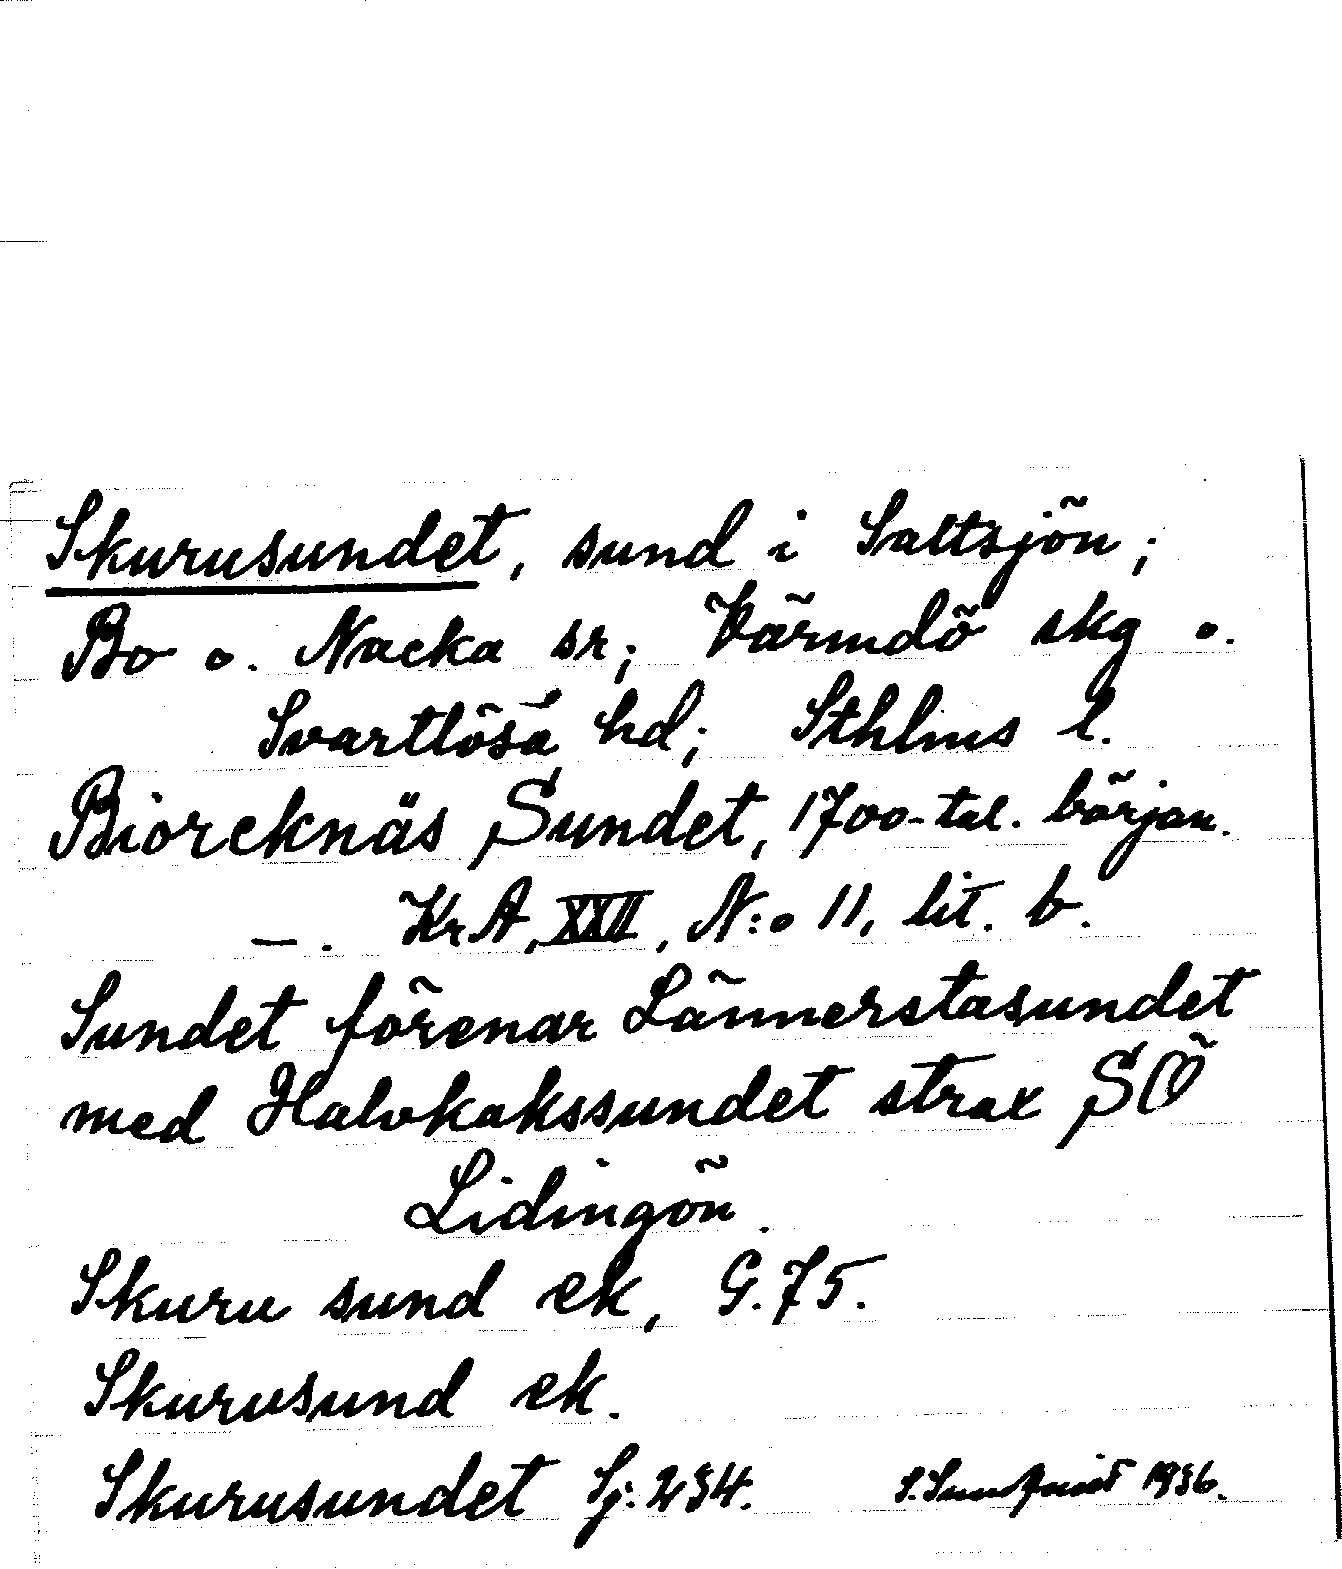 Skurusundet, sund i Saltsjön;
Bo o. Nacka sr; Värmdö skg o.
Svartlösa hd; Sthlms l.
Bioreknäs Sundet, 1700-tal. början.
—. KrA, XXII, N:o 11, lit. b.
Sundet förenar Lännerstasundet
med Halvkakssundet strax SÖ
Lidingön.
Skuru sund ek, G.75.
Skurusund ek.
Skurusundet Sj. 234. S. Sundquist 1936.